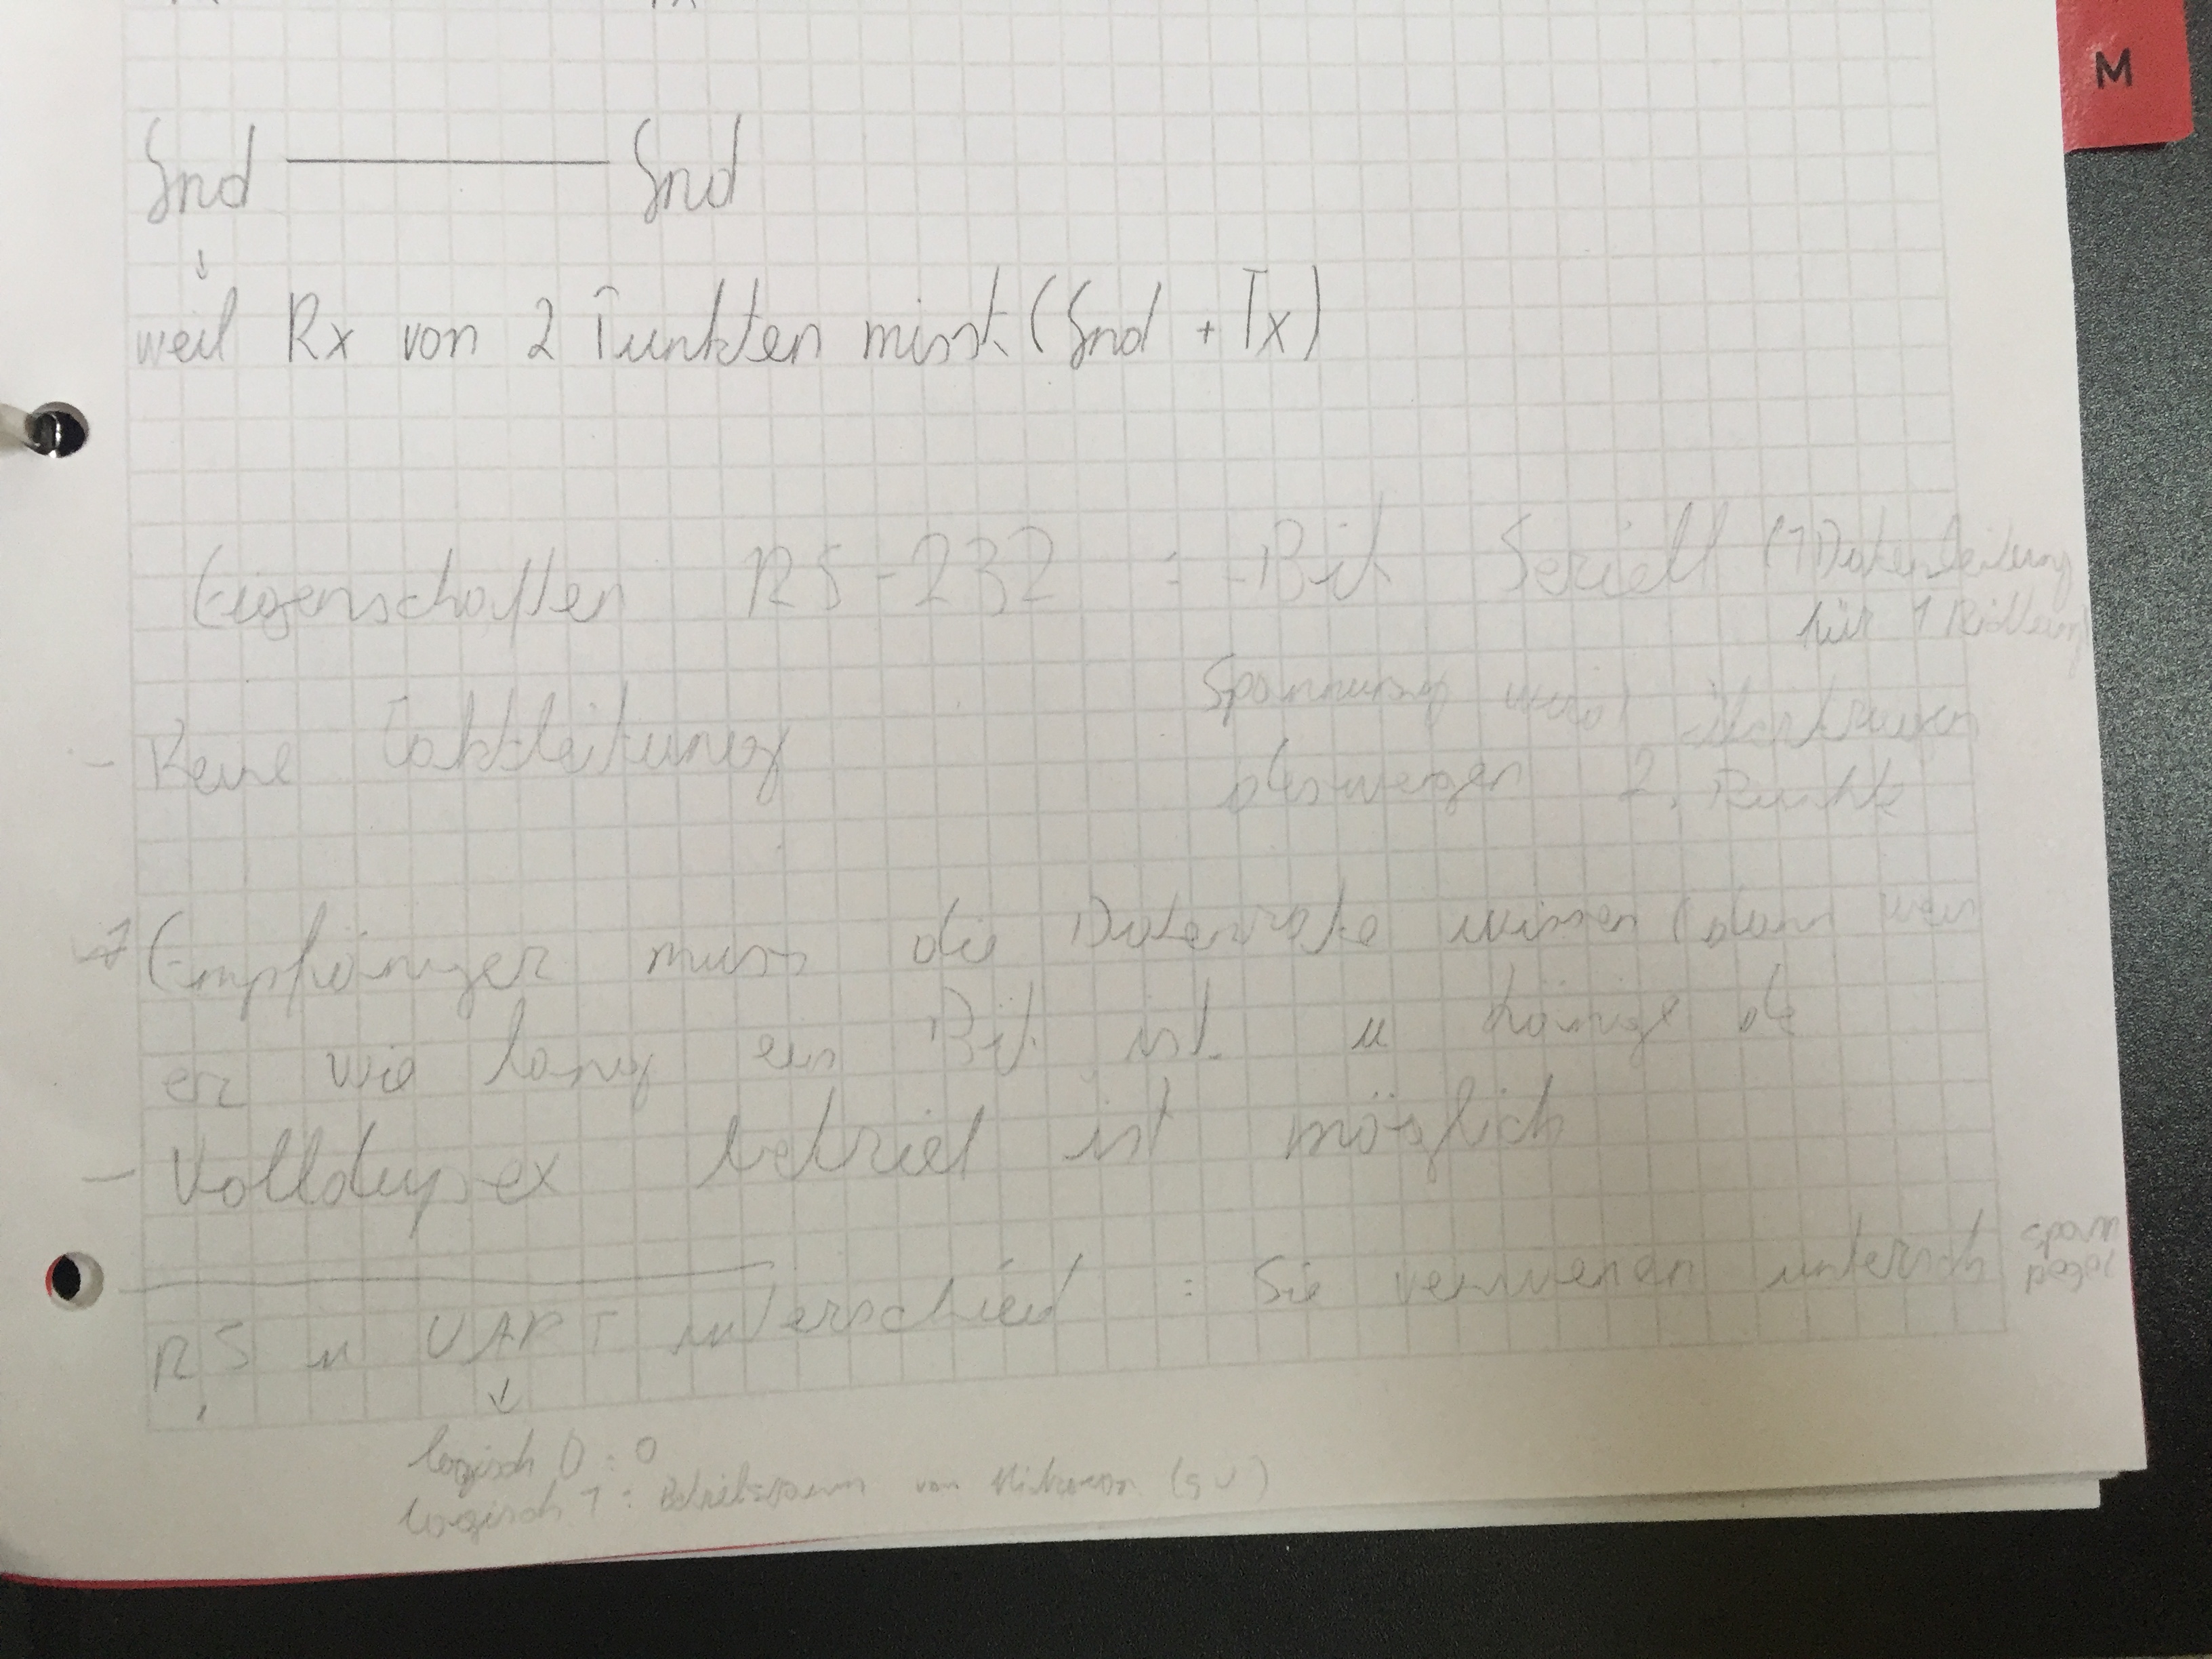 M
Gnd Gnd
weil Rx von 2 Punkten misst (Gnd + Tx)
Eigenschaften RS-232 : - Bit Seriell (1 Datenleitung
für 1 Richtung)
- Keine Taktleitung
Spannung wird übertragen
deswegen 2. Punkte
Empfänger muss die Datenrate wissen (dann
er wie lang ein Bit ist u
- Vollduplex betrieb ist möglich
RS u UART unterschied : Sie verwenen untersch spann
pegel
logisch 0 : 0
logisch 1 : Betriebsspann von (5 V)